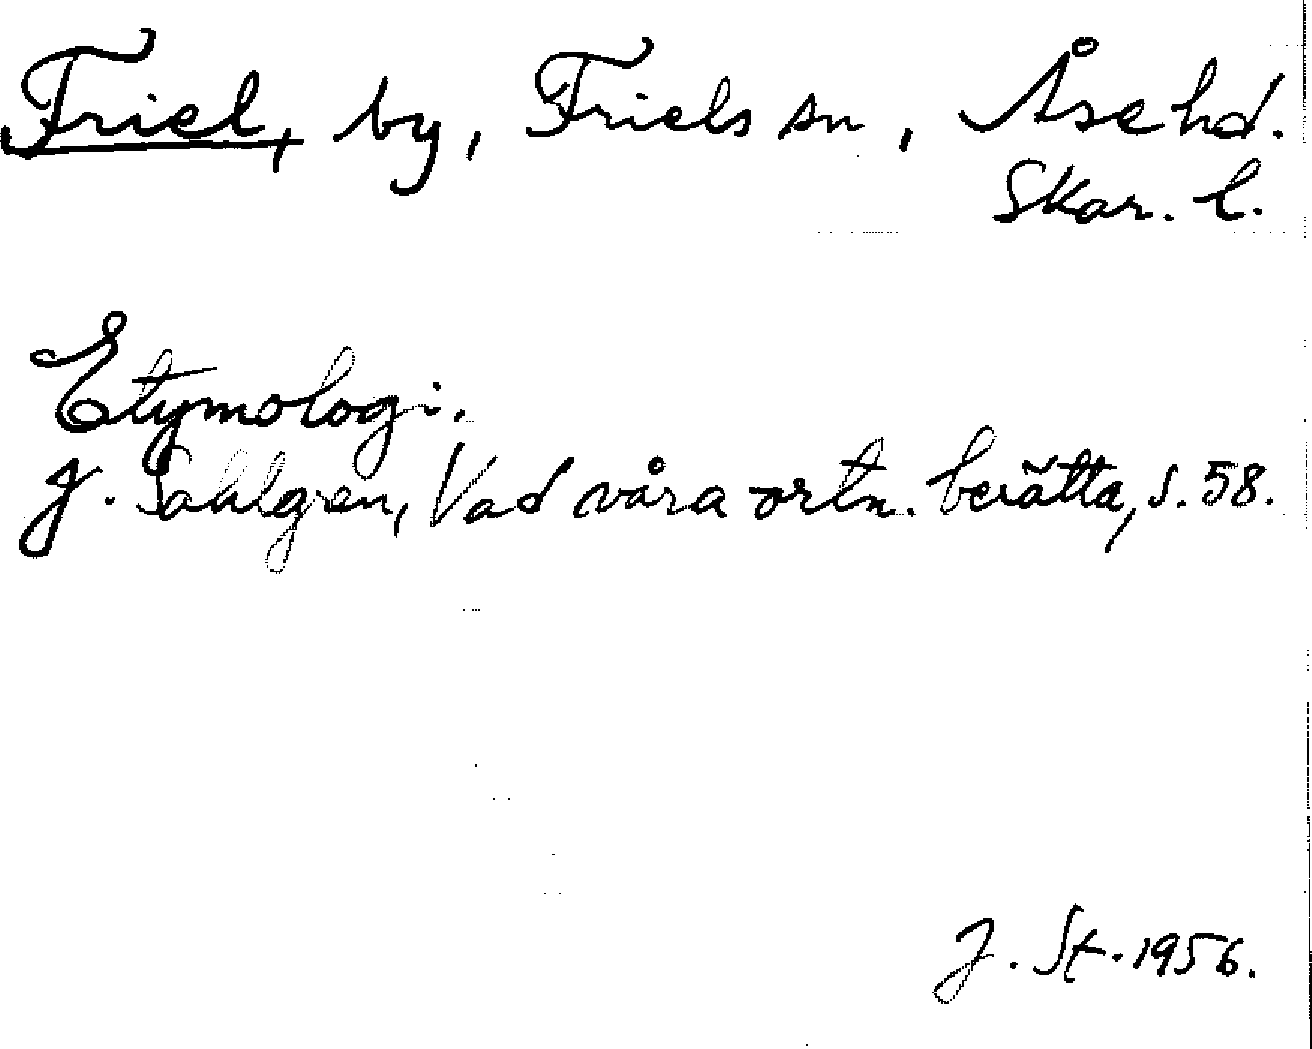 Friel, by, Friels sn, Åse hd.
Skar. l.
Etymologi.
J. Sahlgren, Vad våra ortn. berätta, s. 58.
J. St. 1956.